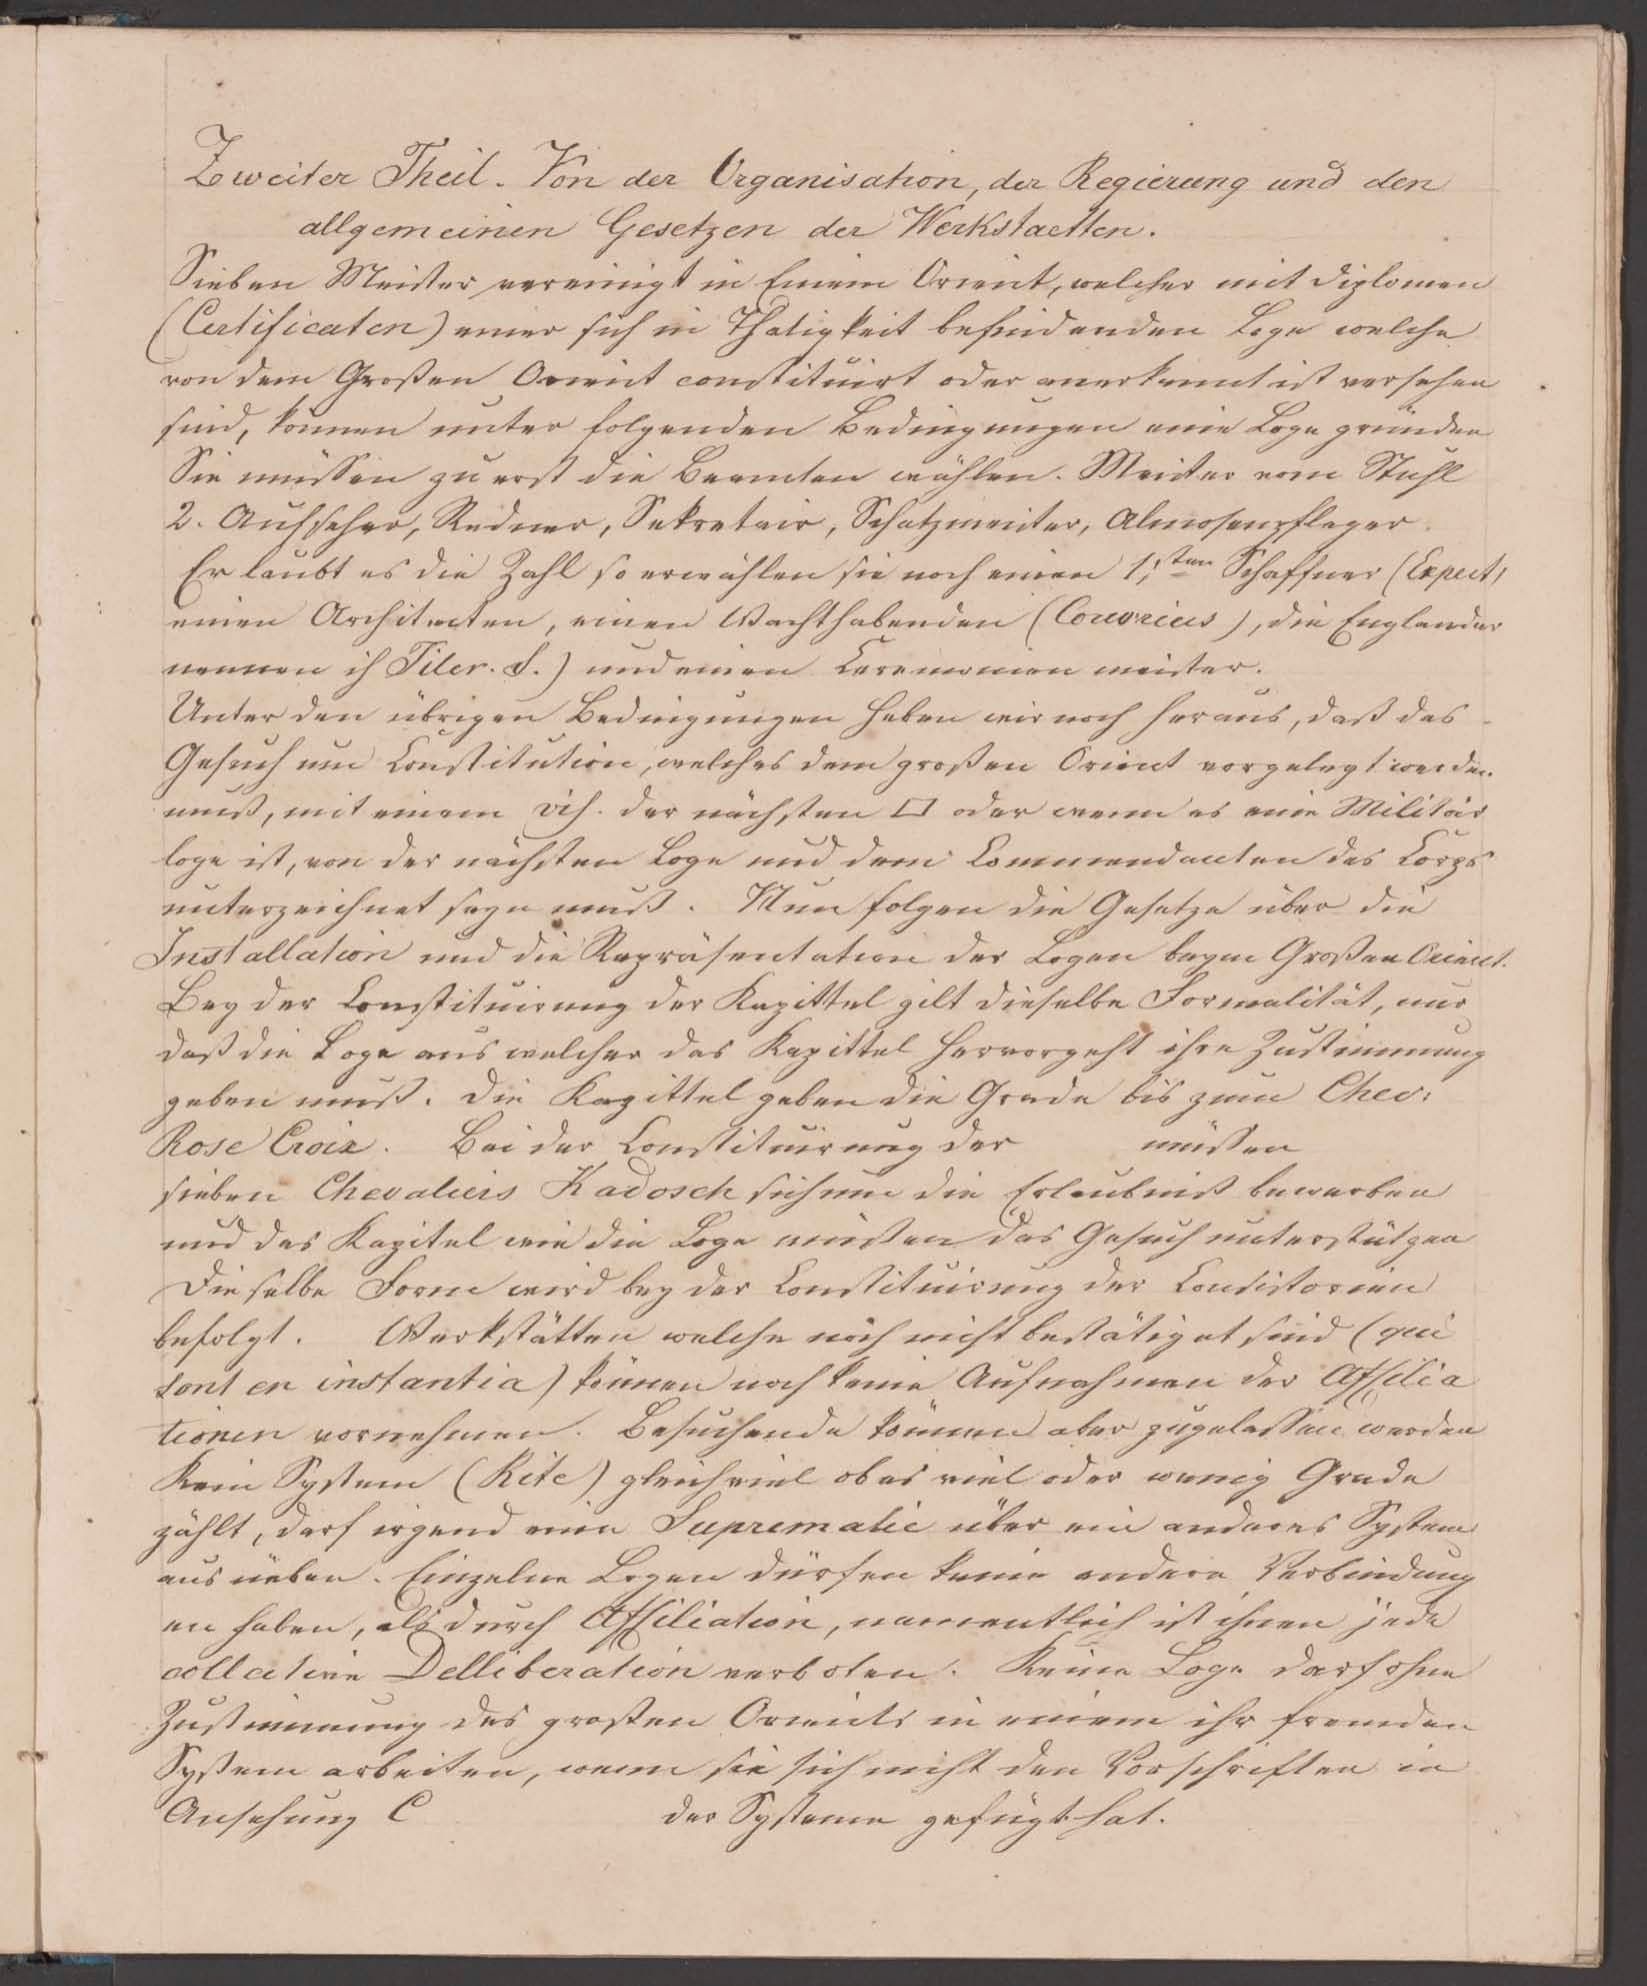 Zweiter Theil. Von der Organisation, der Regierung und den
allgemeinen Gesetzen der Werkstaetten.
Sieben Meister vereinigt in Einem Orient, welcher mit Diplomen
(Certificaten) einer sich in Thatigkeit befindenden Loge welche
von dem Großen Orient constituirt oder anerkannt ist versehen
sind, können unter folgenden Bedingungen eine Loge gründen
Sie müssen zu erst die Beamten wählen. Meister vom Stuhl
2. Aufseher, Redner, Sekretair, Schatzmeister, Almosenpfleger
Erlaubt es die Zahl so erwählen sie noch einen 1;sten Schaffner (Expert)
einen Architecten, einen Wachthabenden (Couvrieus), die Englander
nennen ih Tiler. S.) und einen Ceremonien meister.
Unter den übrigen Bedingungen heben wir noch heraus, daß das
Gesuch um Constitution, welches dem großen Orient vorgelegt werden
muß, mit einem der nächsten □ oder wenn es eine Militär
loge ist, von der nächsten Loge und dem Commendanten des Corps
unterzeichnet seyn muß. Nun folgen die Gesetze über die
Installation und die Repräsentation der Logen beym Großen Orient.
Bey der Constituirung der Kapittel gilt dieselbe Formalität, nur
daß die Loge aus welcher das Kapittel hervorgeht ihre Zustimmung
geben muß. Die Kapittel geben die Grade bis zum Chev:
Rose Croix. Bei der Constituirung der müssen
sieben Chevaliers Kadosch sich um die Erlaubniß bewerben
und das Kapitel wie die Loge müssen das Gesuch unterstützen
Dieselbe Form wird bey der Constituirung der Consistorien
befolgt. Werkstätten welche noch nicht bestätiget sind (qui
sont en instantia) können noch keine Aufnahmen der Affilia
tionen vornehmen. Besuchende können aber zugelassen werden
Kein System (Rite) gleichviel ob es viel oder wenig Grade
zählt, darf irgend eine Suprematie über ein anderes System
aus üeben. Einzelne Logen dürfen keine andere Verbindung
en haben, als durch Affiliation, namentlich ist ihnen jede
collective Delliberation verboten. Keine Loge darf ohne
Zustimmung des großen Orients in einem ihr fremden
System arbeiten, wenn sie sich nicht den Vorschriften in
Ansehung C der Systeme gefügt hat.